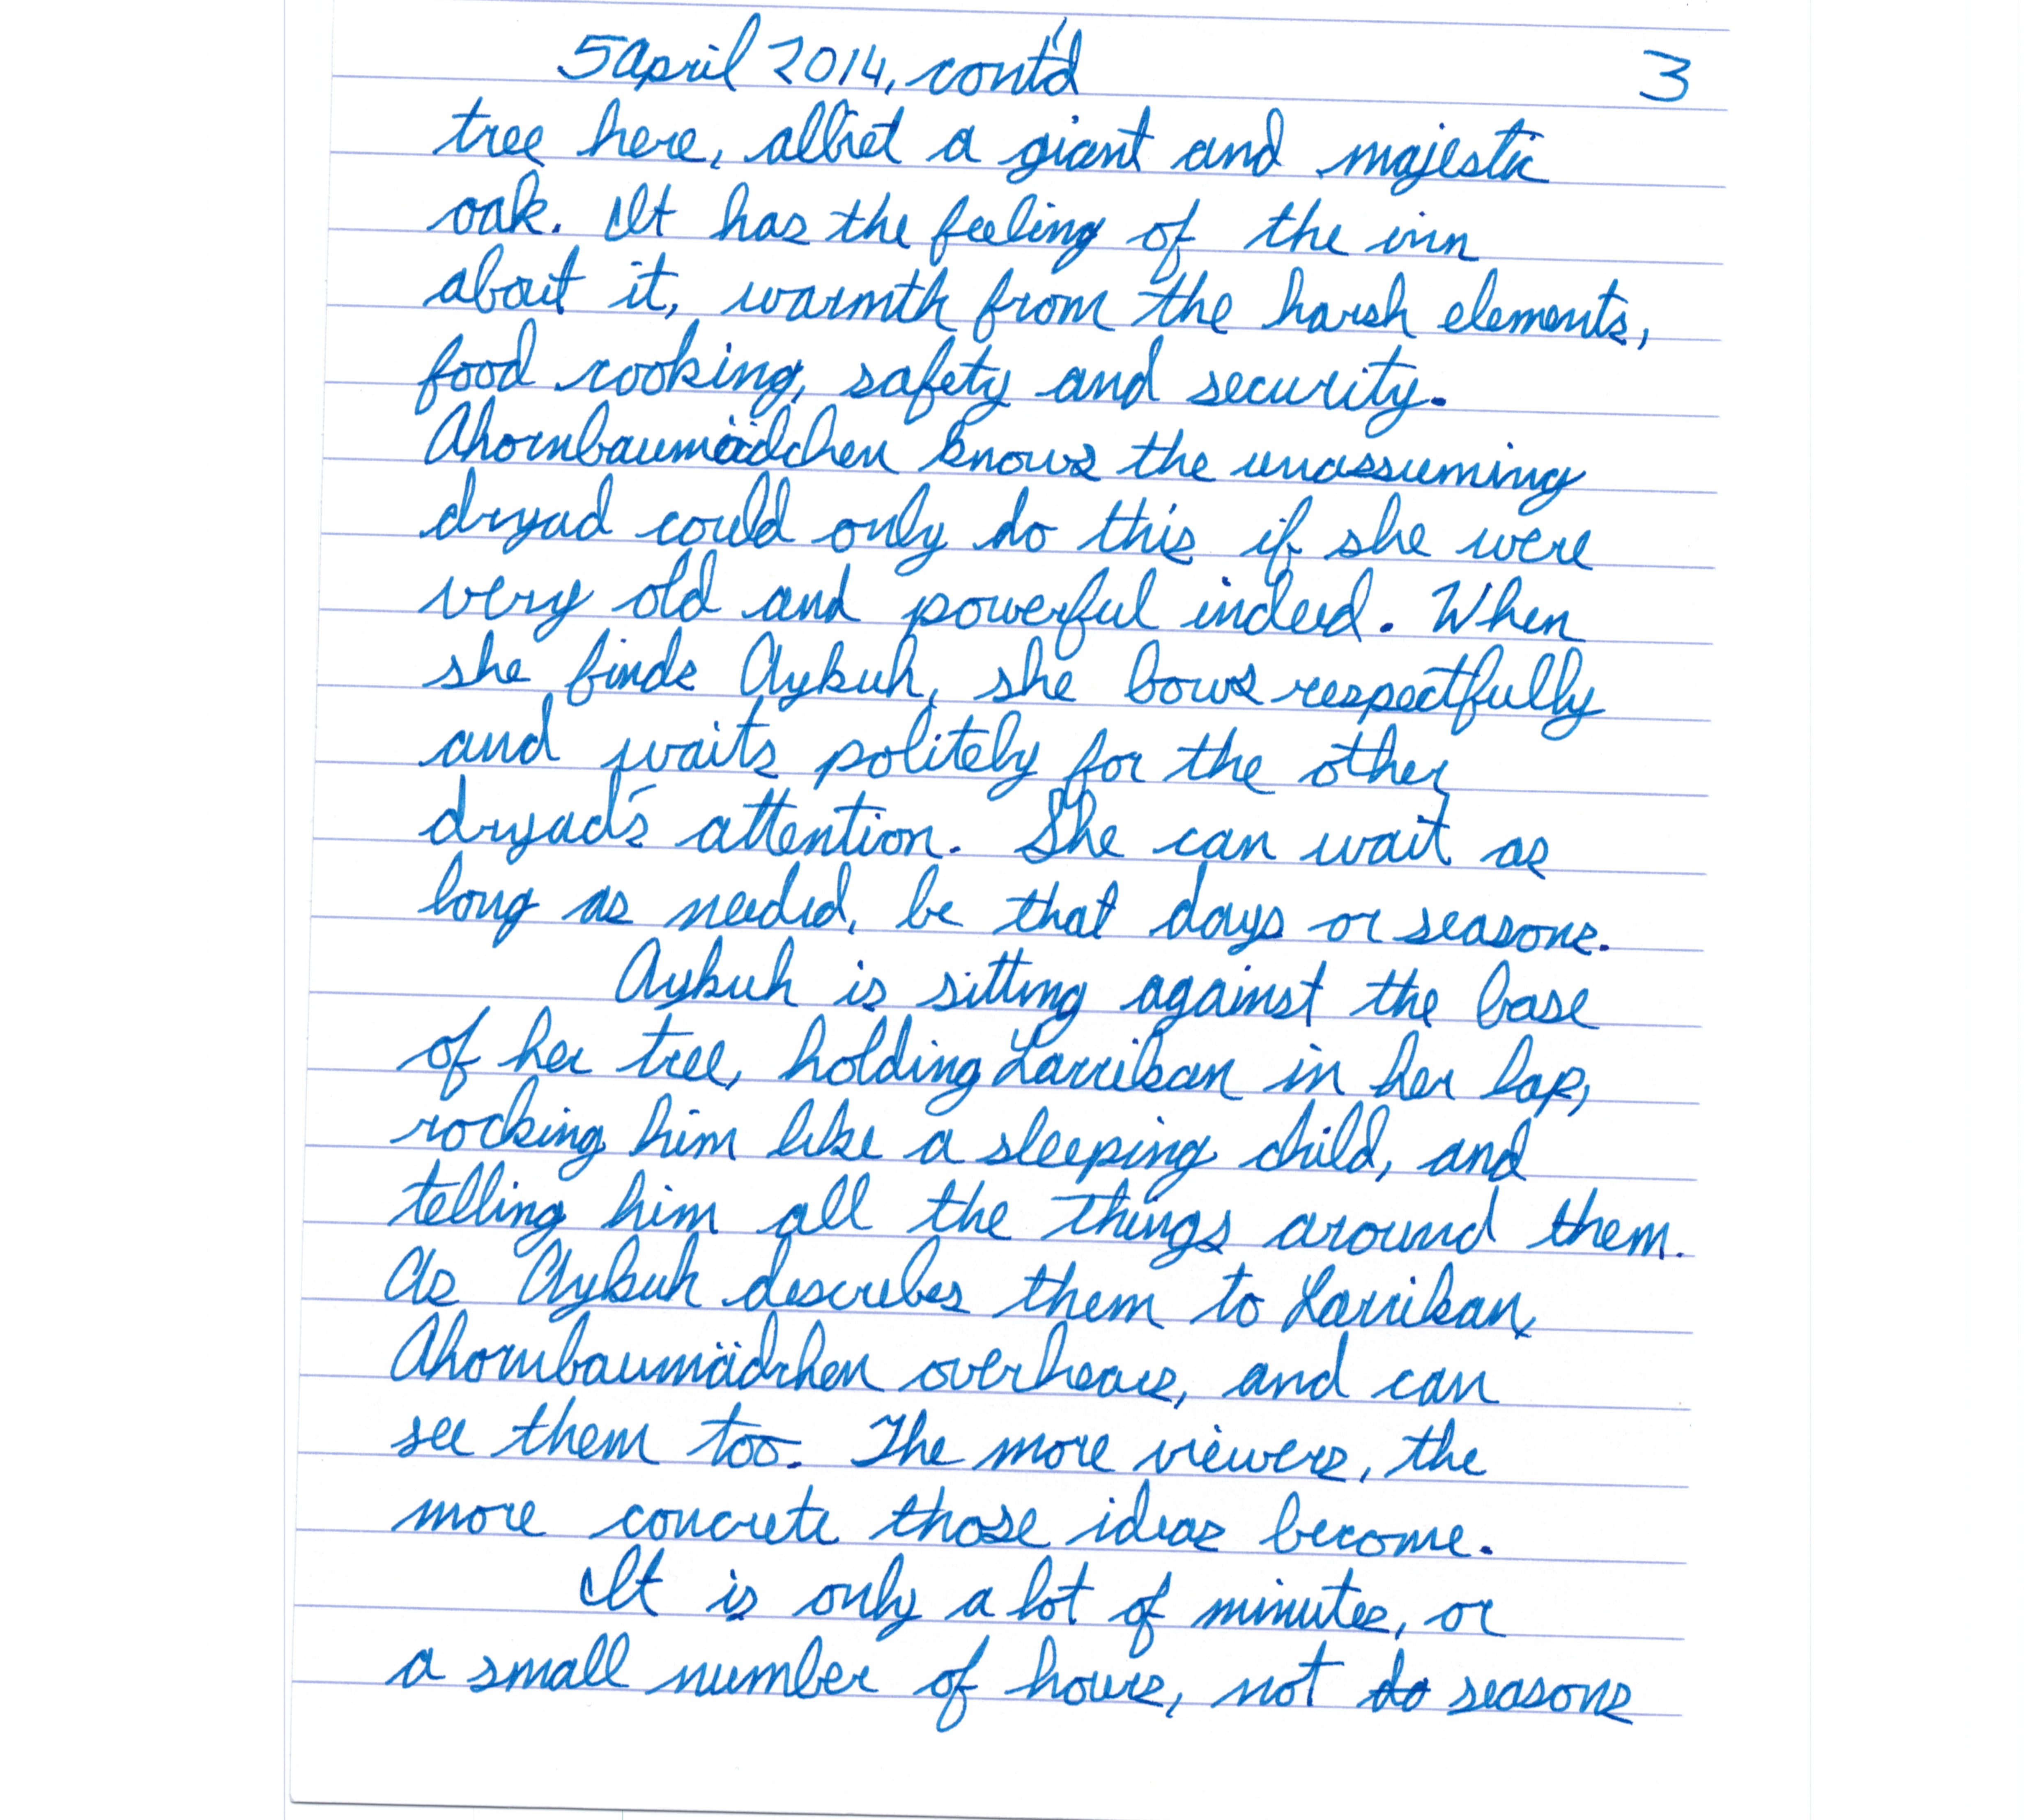 5 April 2014, cont'd 3
tree here, albiet a giant and majestic
oak. It has the feeling of the inn
about it, warmth from the harsh elements,
food cooking, safety and security.
Ahornbaumädchen knows the unassuming
dryad could only do this if she were
very old and powerful indeed. When
she finds Aykuh, she bows respectfully
and waits politely for the other
dryad's attention. She can wait as
long as needed, be that days or seasons.
Aykuh is sitting against the base
of her tree, holding Larrikan in her lap,
rocking him like a sleeping child, and
telling him all the things around them.
As Aykuh describes them to Larrikan,
Ahornbaumädchen overhears, and can
see them too. The more viewers, the
more concrete those ideas become.
It is only a lot of minutes, or
a small number of hours, not do seasons